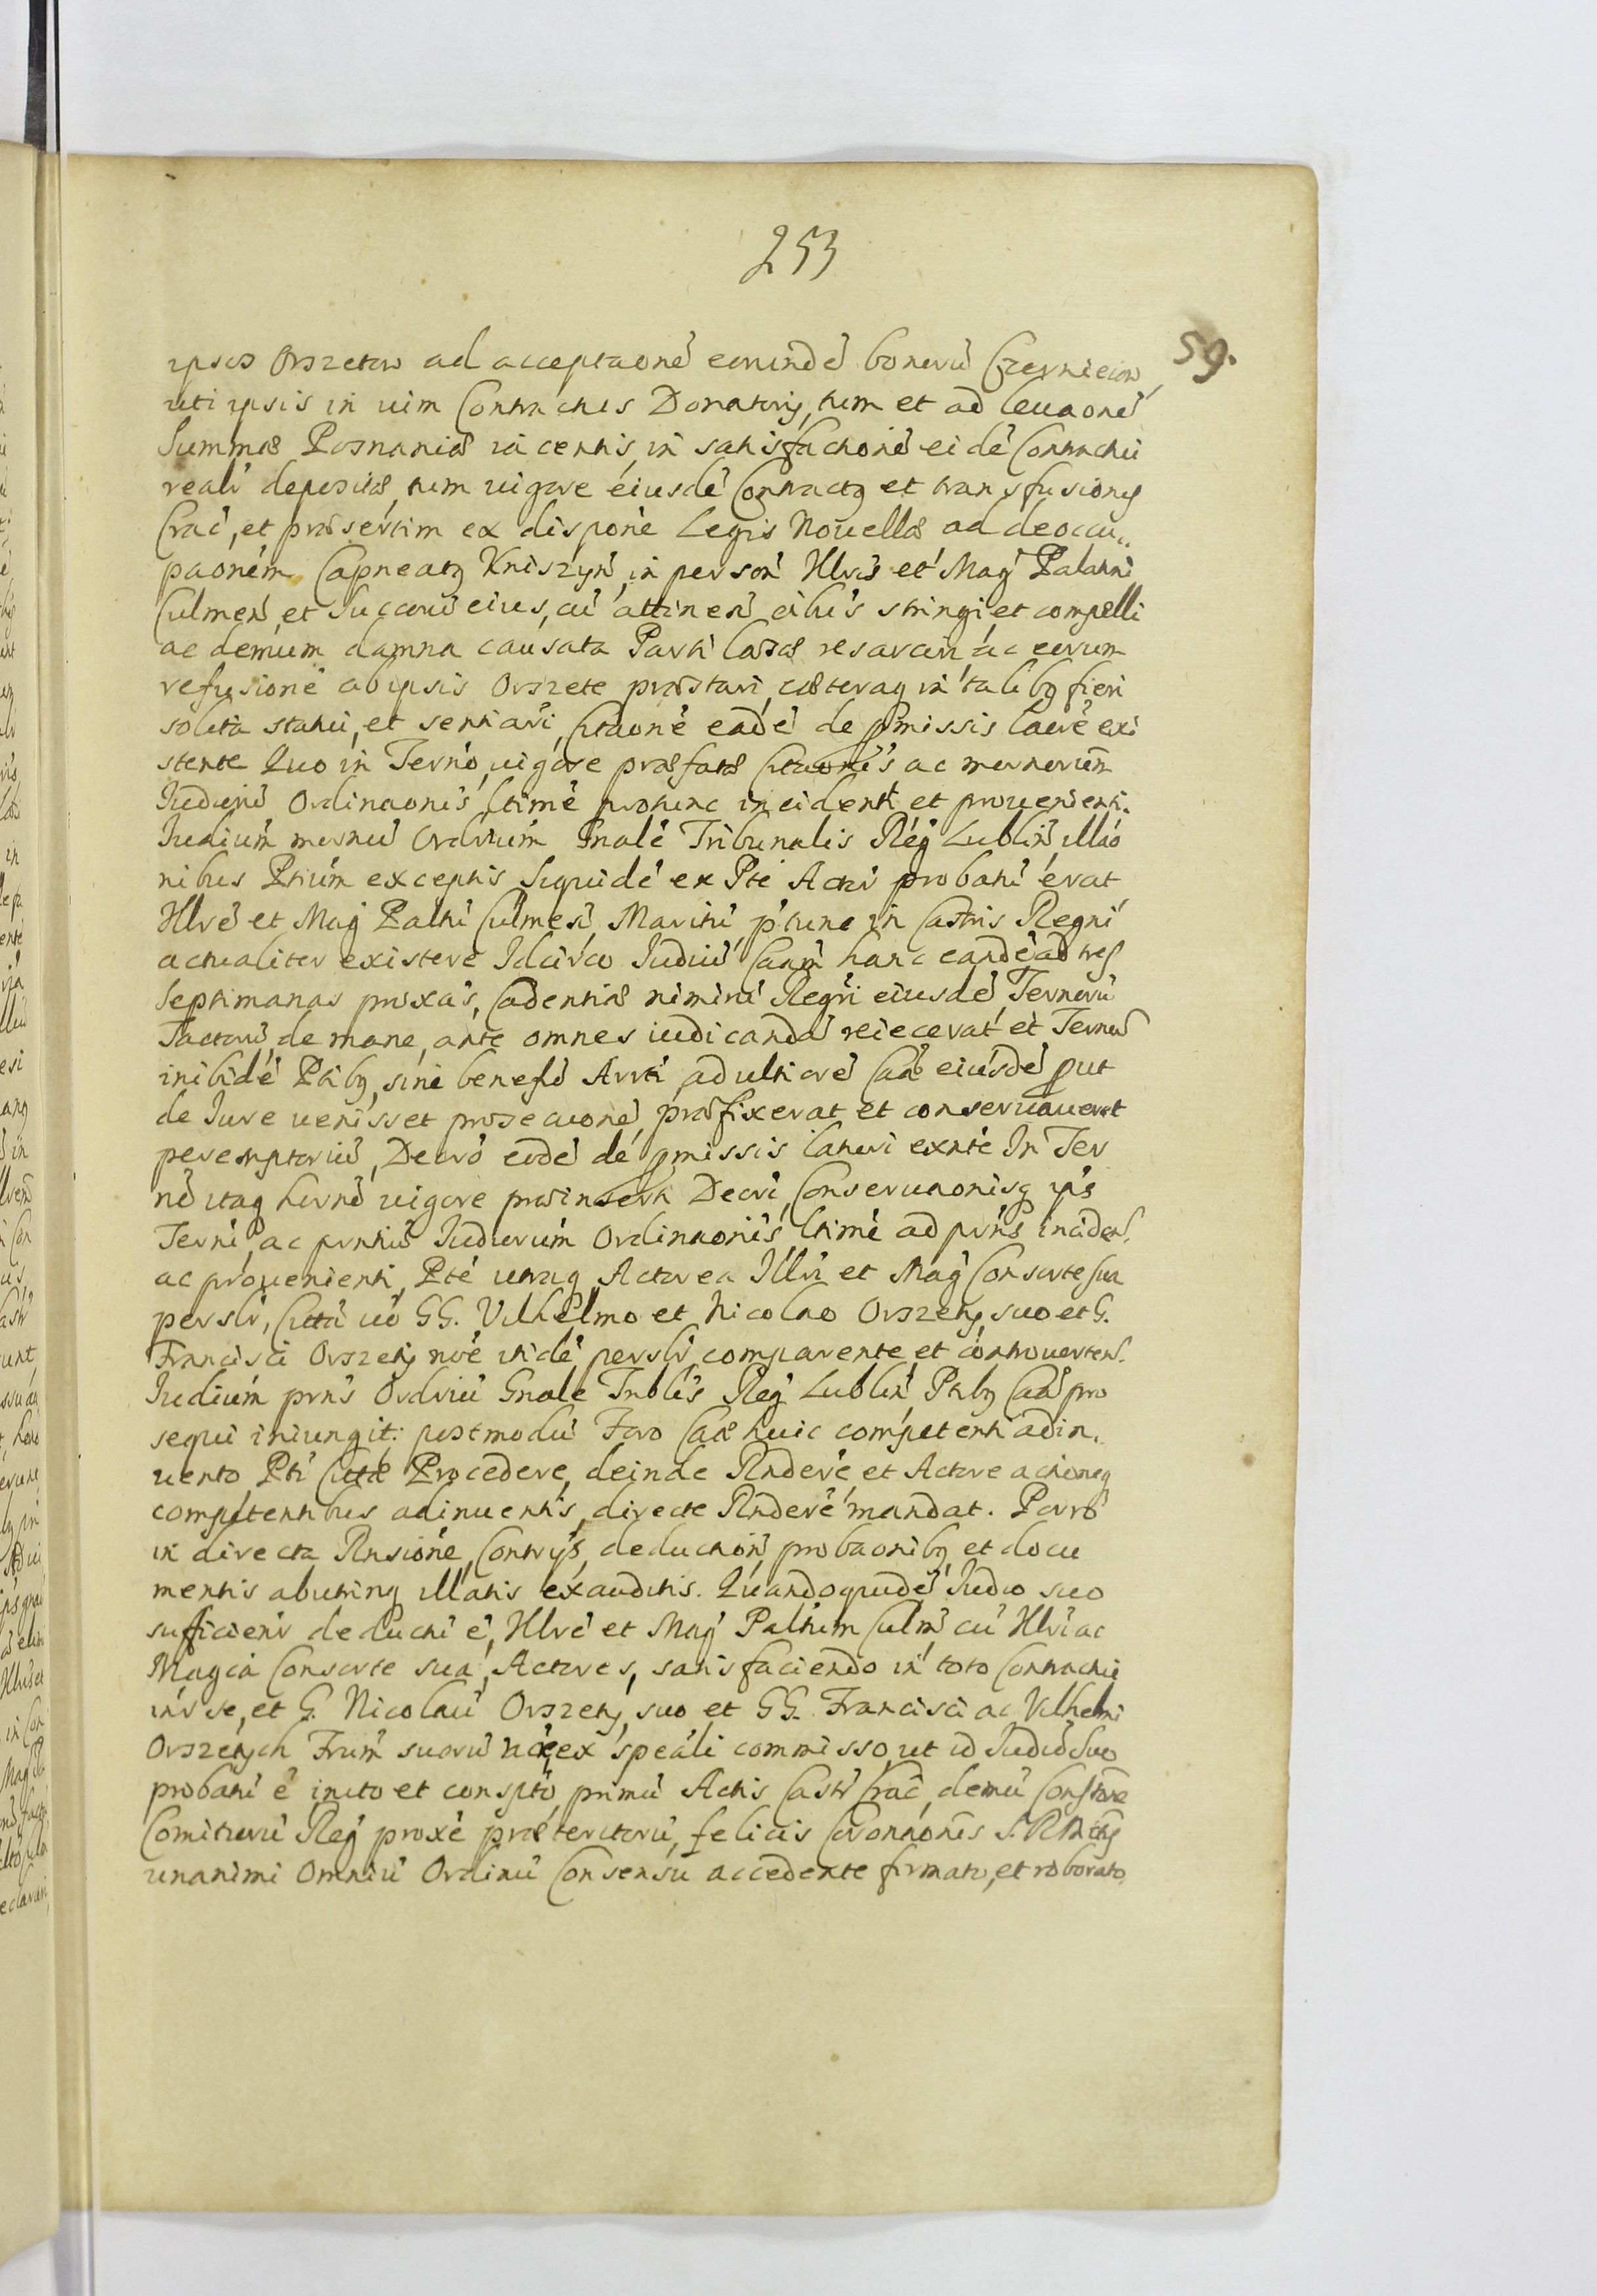 253
59.
ipsos Orszetow ad acceptaonẽ eorundẽ bonorũ Czerniecin
uti ipsis in uim Contractus Donatorij, tum et ad leuaonẽ
Summæ Posnaniæ iacentis, in satisfactionẽ eidẽ Contractui
reali depositæ, tum uigore eiusdẽ Contractus et transfusionis
Crac̃, et præsertim ex disponẽ Legis Nouellæ ad deoccu„
paonẽm Capneatus Kniszyn̄, in person̄ Illris et Mag̃ Palatini
Culmen̄, et Succorũ eius, cũ attinen̄ cibus stringi, et compelli
ac demum damna causata Parti læsæ resarciri, ac eorum
refusionẽ ab ipsis Orszete præstari, cæteraq in talibus fieri
solita statui, et sentiari, Citaonẽ eadẽ de pmissis latiẽ exi
stente Quo in Ternõ, uigore præfatæ Citaonis ac mernorum̃
Iudiorũ Ordinaonis, ltimẽ protunc incidenti et prouenienti.
Iudium mernũ Ordrium Gnalẽ Tribunalis Reg̃ Lublin̄, illaõ
nibus Ptium exceptis Siquidẽ ex Ptẽ Actorĩ probatũ erat
Illrẽ et Mag̃ Paltũ Culmes̃, Maritũ, p tunc in Castris Regni
actualiter existere Idcirco Iudiũ Caam̃ hanc eandẽ ad tres
Septimanas proxas̃, Cadentiæ nimirũ Regri eiusdẽ, Ternorũ
Tactorũ, de mane, ante omnes iudicandã reiecerat, et Ternũ
inibidẽ Ptibus, sine benefõ Arrti, ad ultiorẽ Caæ eiusdẽ put
de Iure uenisset prosecuonẽ, præfixerat et conseruauerat
peremptoriũ, Decrõ eodẽ de pmissis latiori exntẽ In Ter
nõ itaq hernõ uigore præinserti Decri, Conseruaonisq ips̃
Terni, ac pnntiũ Iudiorum Ordinaonis, ltimẽ ad prñs inciden̄.
ac prouenienti, Ptẽ utraq Actorea Illri et Mag̃ Consorte sua
perslr̃, Cittã uõ GG. Vilhelmo et Nicolao Orszetij, suo et G.
Francisci Orszetij nõẽ itidẽ perslr̃ comparente, et controuerten̄.
Iudium prñs Ordriũ Gnale Trblis Reg̃ Lublin̄, Ptibus Caã pro
sequi iniungit: postmodũ Foro Caæ huic competenti adin„
uento, Pti Cittæ Procedere, deinde Rndere, et Actore actionisq
competentibus adinuentis, directe Rndere mandat. Porrõ
in directa Rnsionẽ, Contrijs, deduction̄, probaonibus et docu
mentis abutrinq illatis exauditis. Quandoquidẽ Iudio suo
suficienr̃ deductũ ẽ, Illrẽ et Mag̃ Paltinum Culm̄ cũ Illri ac
Magca Consorte sua, Actores, satisfaciendo in toto Contractui
inr̃ se, et G. Nicolaũ Orszetij, suo et GG. Francisci ac Vilhelmi
Orszetych Frum̃ suorũ nõẽ, ex speali commisso, ut id Iudio suo
probatũ ẽ, inito et conscpto, primũ Actis Castr̃ Crac̃, demũ Constone
Comitiorũ Reg̃ proxẽ præteritorũ, felicis Coronaonis S. R. Mttis
unanimi Omniũ Ordinũ Consensu accedente firmato, et roborato,